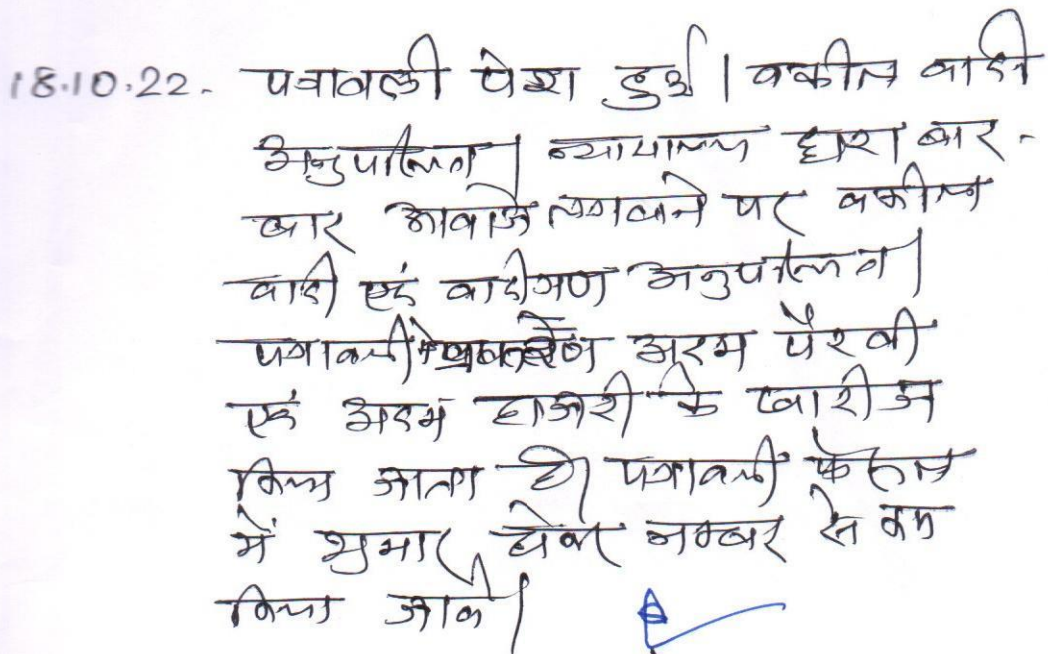 18.10.22. पत्रावली पेश हुई। वकील वादी
अनुपस्थित। न्यायालय द्वारा बार-
बार आवाजे लगवाने पर वकील
वादी एवं वादीगण अनुपस्थित।
पत्रावली अदम पैरवी
एवं अदम हाजरी के खारीज
किया जाता है। पत्रावली फैसल
में शुमार होकर नम्बर से कम
किया जावे।